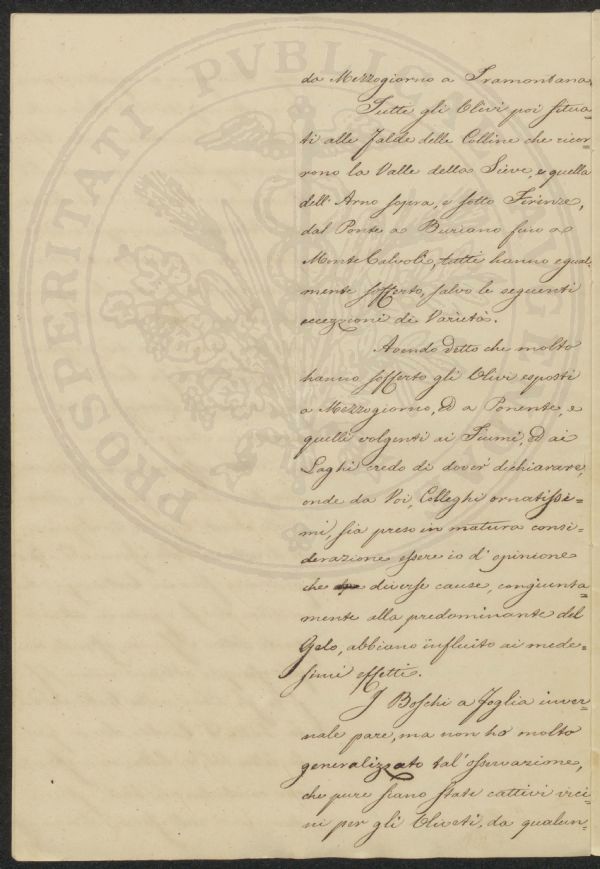 da Mezzogiorno a Tramontana.
Tutti gli Olivi poi situa-
ti alle Falde delle Colline che ricor-
rono la Valle della Sieve, e quella
dell'Arno sopra, e sotto Firenze,
dal Ponte a Buriano fino a
Monte Calvoli, tutti hanno egual-
mente sofferto, salvo le seguenti
eccezzioni di Varietà.
Avendo detto che molto
hanno sofferto gli Olivi esposti
a Mezzogiorno, ed a Ponente, e
quelli volgenti ai Fiumi, ed ai
Laghi credo di dover dichiarare,
onde da Voi, Colleghi ornatissi=
mi, sia preso in matura consi-
derazione essere io d'opinione
che diverse cause, congiunta=
mente alla predominante del
Gelo, abbiano influito ai mede-
simi effetti.
I Boschi a foglia inver=
nale pare, ma non ho molto
generalizzato tal'osservazione,
che pure siano stati cattivi vici-
ni per gli Oliveti, da qualun-
PROSPERITATI PVBLICAE